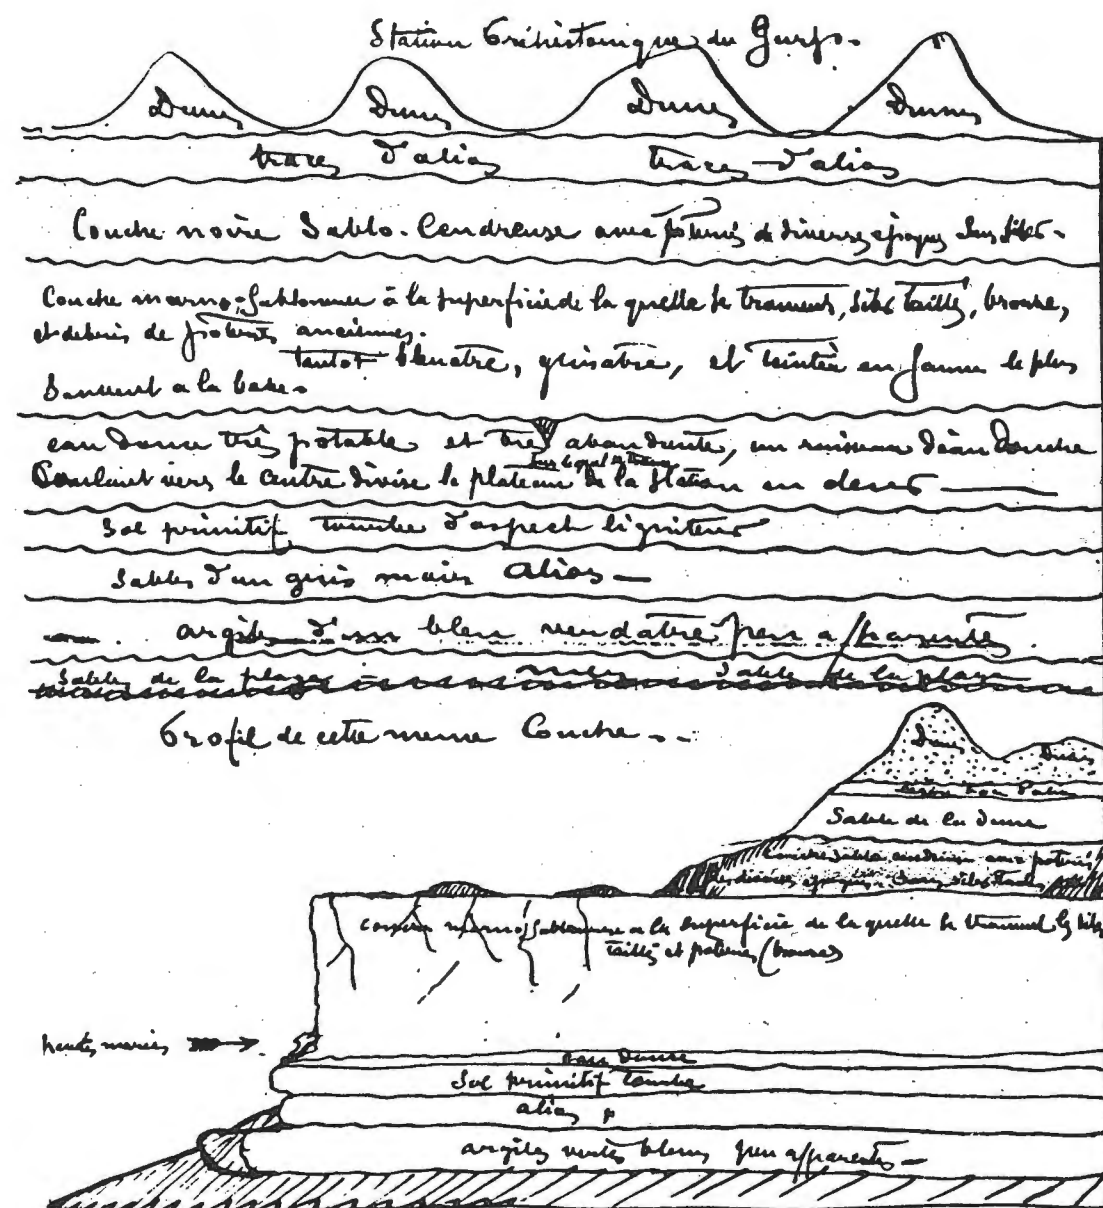 Station Préhistorique du Gurp.
Dunes Dunes Dunes Dunes
traces d'alios traces d'alios
Couche noire Sablo-Cendreuse avec poteries de diverses époques Sans Silex.
Couche marno-Sablonneuse à la superficie de la quelle se trouvent, Silex taillés, bronze,
et debris de poteries anciennes.
tantot bleuatre, grisatre, et teintée en jaune le plus
Souvent a la base.
eau douce très potable et très abondante, un ruisseau d'eau douce
Coulant vers le centre divise le plateau de la Station en deux
Sol primitif tourbe d'aspect ligniteux
Sables d'un gris noir Alios
argiles d'un bleu verdatre peu apparentes
Sables de la plage mer Sables de la plage
Profil de cette meme Couche
Dunes Dunes
Sable de la Dune
Couche Sablo cendreuse avec poteries
de diverses époques. Sans silex taillés
Couche marno Sablonneuse a la Superficie de la quelle se trouvent les silex
taillés et poteries (bronze)
hautes marées
eau Douce
Sol primitif tourbe
alios
argiles vertes bleues peu apparentes